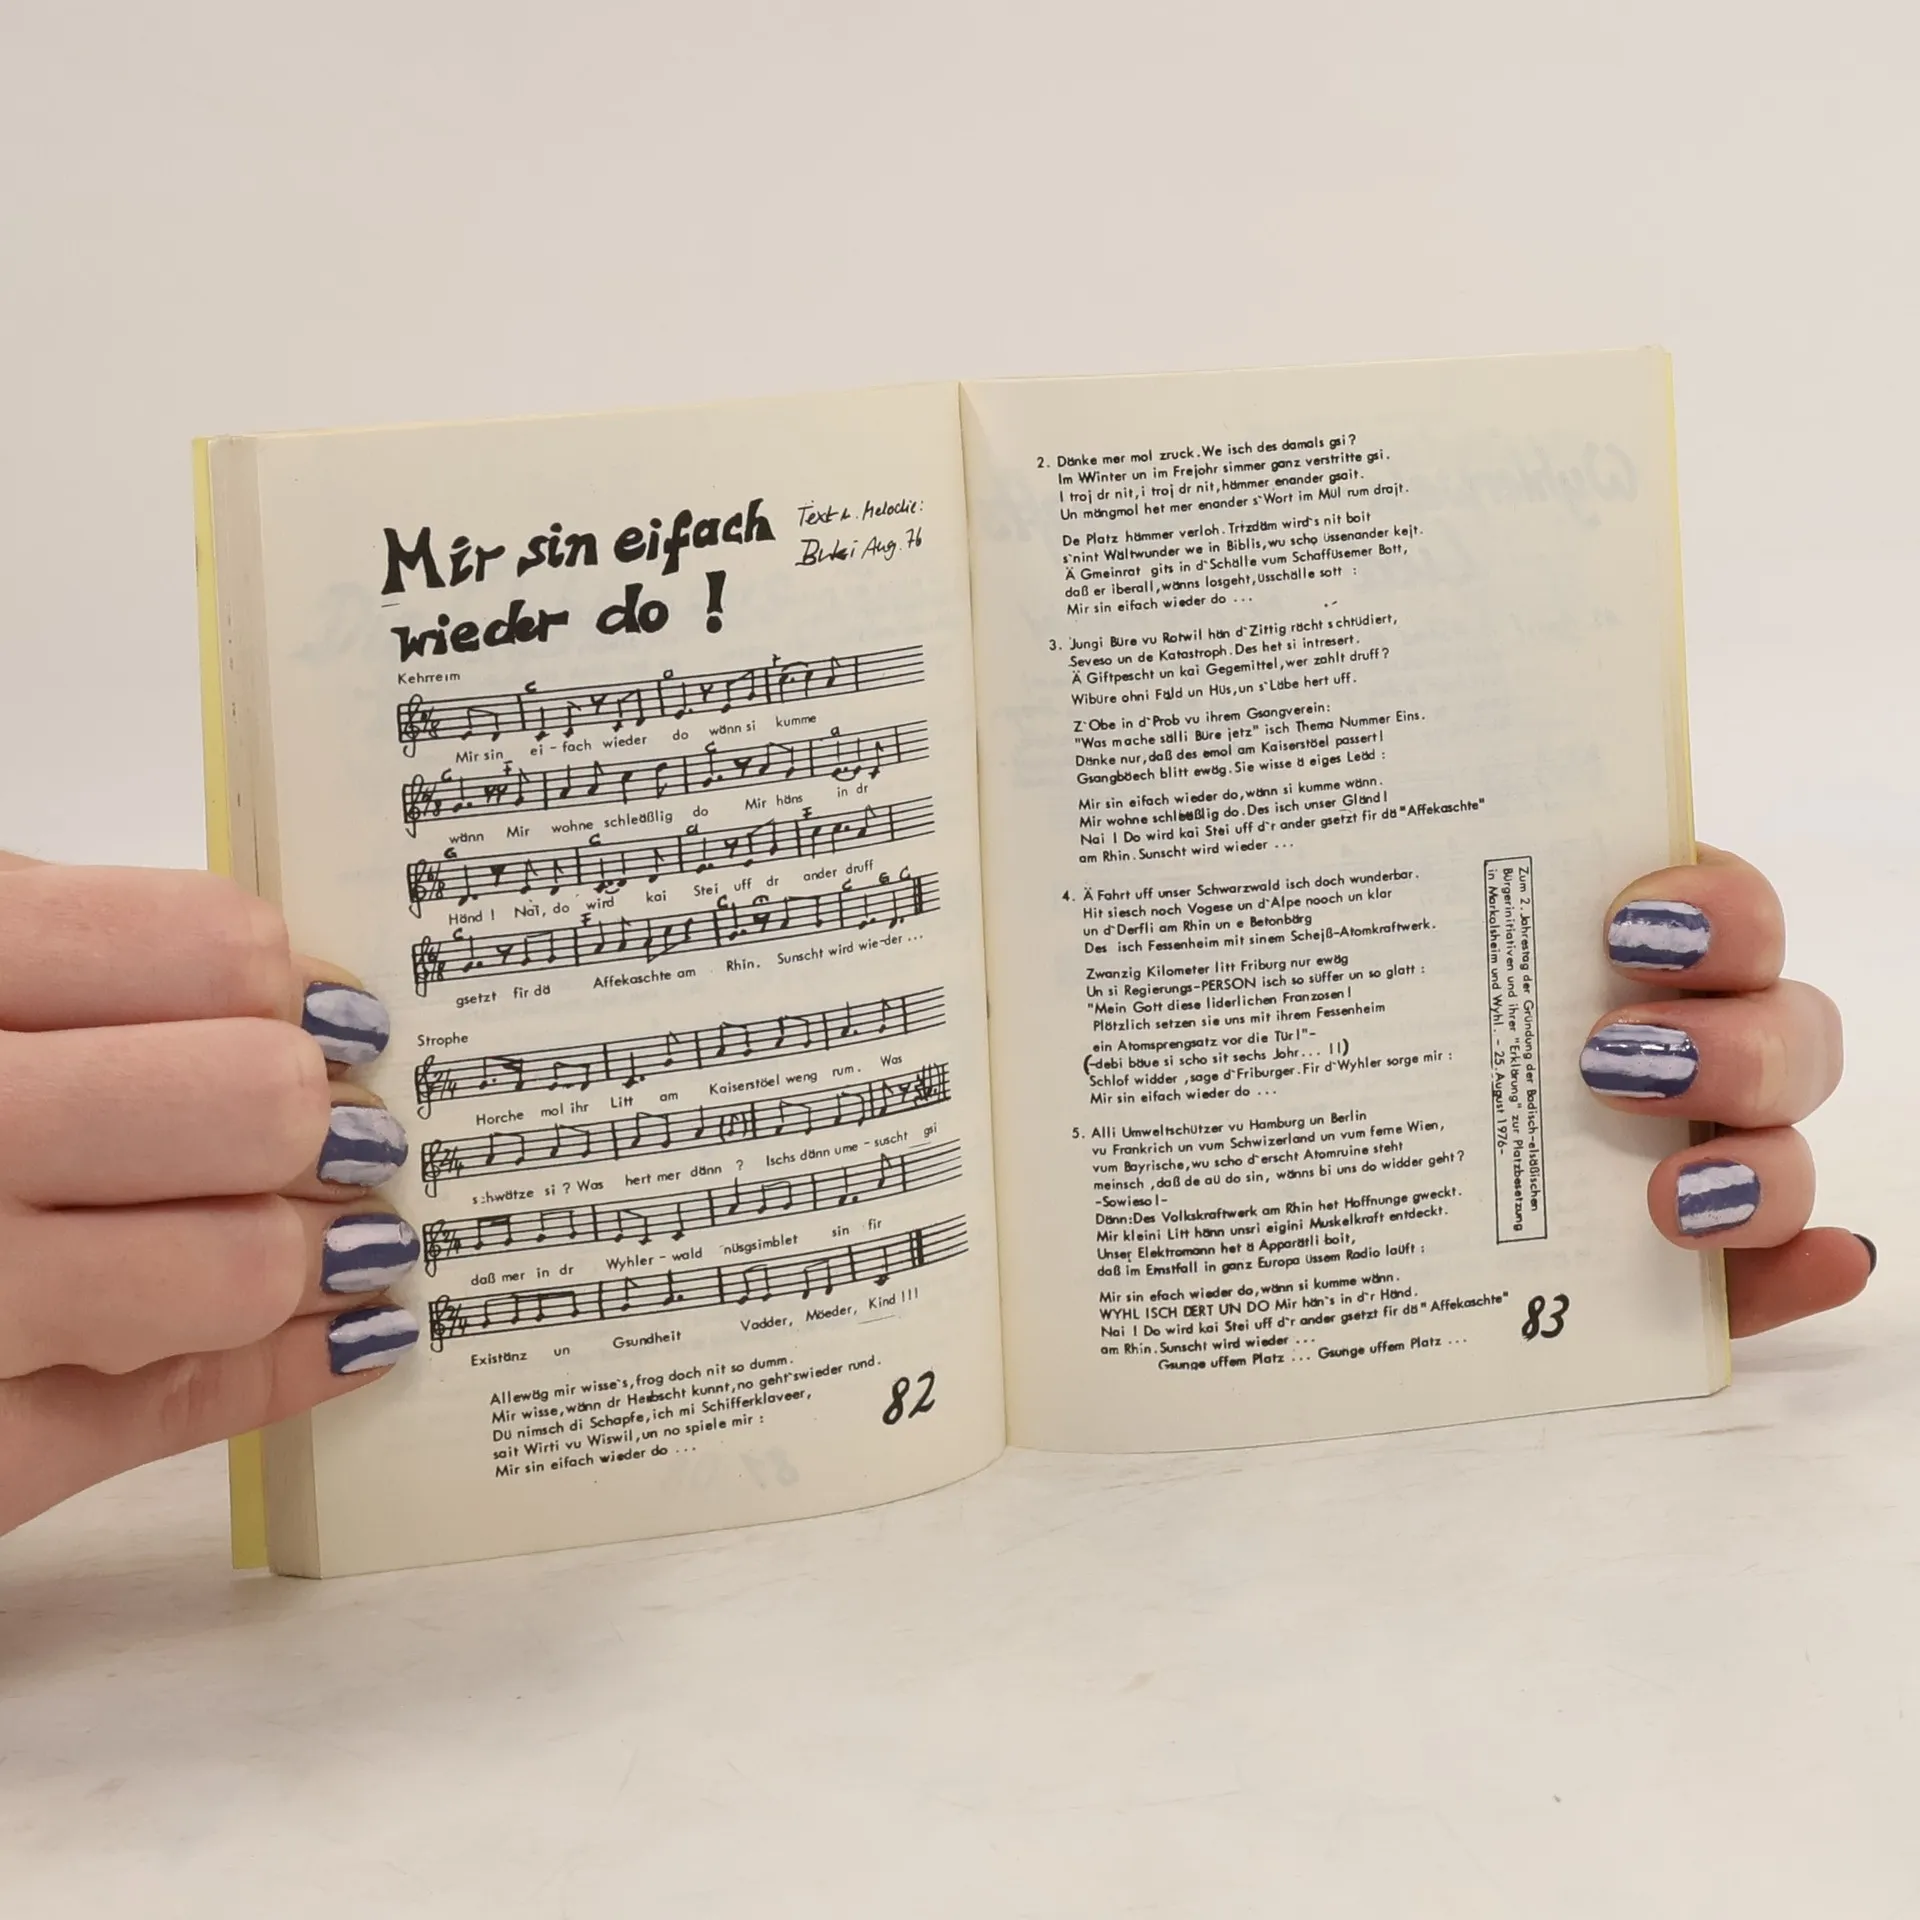 Mir sin eifach
wieder do !
Text u. Melodie:
Buki Aug. 76
Kehrreim
Mir sin ei - fach wieder do wänn si kumme
wänn Mir wohne schleäßlig do Mir häns in dr
Händ ! Nai, do wird kai Stei uff dr ander druff
gsetzt fir dä Affekaschte am Rhin. Sunscht wird wie-der ...
Strophe
Horche mol ihr Litt am Kaiserstöel weng rum. Was
schwätze si ? Was hert mer dänn ? Ischs dänn ume - suscht gsi
daß mer in dr Wyhler - wald nüsgsimblet sin fir
Existänz un Gsundheit Vadder, Möeder, Kind !!!
Allewäg mir wisse`s,frog doch nit so dumm.
Mir wisse,wänn dr Herbscht kunnt,no geht`swieder rund.
Dü nimsch di Schapfe,ich mi Schifferklaveer,
sait Wirti vu Wiswil,un no spiele mir :
Mir sin eifach wieder do ...
82
2. Dänke mer mol zruck.We isch des damals gsi ?
Im Winter un im Frejohr simmer ganz verstritte gsi.
I troj dr nit,i troj dr nit,hämmer enander gsait.
Un mängmol het mer enander s`Wort im Mül rum drajt.
De Platz hämmer verloh.Trtzdäm wird`s nit boit
s`nint Wältwunder we in Biblis,wu scho üssenander kejt.
Ä Gmeinrat gits in d`Schälle vum Schaffüsemer Bott,
daß er iberall,wänns losgeht,üsschälle sott :
Mir sin eifach wieder do ...
3. Jungi Büre vu Rotwil hän d`Zittig rächt schtüdiert,
Seveso un de Katastroph.Des het si intresert.
Ä Giftpescht un kai Gegemittel,wer zahlt druff ?
Wibüre ohni Fäld un Hüs,un s`Läbe hert uff.
Z`Obe in d`Prob vu ihrem Gsangverein:
"Was mache sälli Büre jetz" isch Thema Nummer Eins.
Dänke nur,daß des emol am Kaiserstöel passert!
Gsangböech blitt ewäg.Sie wisse ä eiges Leäd :
Mir sin eifach wieder do,wänn si kumme wänn.
Mir wohne schleäßlig do.Des isch unser Gländ!
Nai ! Do wird kai Stei uff d`r ander gsetzt fir dä "Affekaschte"
am Rhin.Sunscht wird wieder ...
4. Ä Fahrt uff unser Schwarzwald isch doch wunderbar.
Hit siesch noch Vogese un d`Alpe nooch un klar
un d`Derfli am Rhin un e Betonbärg
Des isch Fessenheim mit sinem Schejß-Atomkraftwerk.
Zwanzig Kilometer litt Friburg nur ewäg
Un si Regierungs-PERSON isch so süffer un so glatt :
"Mein Gott diese liderlichen Franzosen!
Plötzlich setzen sie uns mit ihrem Fessenheim
ein Atomsprengsatz vor die Tür!"-
(-debi böue si scho sit sechs Johr... !!)
Schlof widder ,sage d`Friburger.Fir d`Wyhler sorge mir :
Mir sin eifach wieder do ...
5. Alli Umweltschützer vu Hamburg un Berlin
vu Frankrich un vum Schwizerland un vum ferne Wien,
vum Bayrische,wu scho d`erscht Atomruine steht
meinsch ,daß de aü do sin, wänns bi uns do widder geht?
-Sowieso!-
Dänn:Des Volkskraftwerk am Rhin het Hoffnunge gweckt.
Mir kleini Litt hänn unsri eigini Muskelkraft entdeckt.
Unser Elektromann het ä Apparätli boit,
daß im Ernstfall in ganz Europa üssem Radio laüft :
Mir sin efach wieder do,wänn si kumme wänn.
WYHL ISCH DERT UN DO Mir hän`s in d`r Händ.
Nai ! Do wird kai Stei uff d`r ander gsetzt fir dä "Affekaschte"
am Rhin.Sunscht wird wieder ...
Gsunge uffem Platz ... Gsunge uffem Platz ...
Zum 2. Jahrestag der Gründung der Badisch-elsäßischen
Bürgerinitiativen und ihrer "Erklärung" zur Platzbesetzung
in Markolsheim und Wyhl. - 25. August 1976-
83